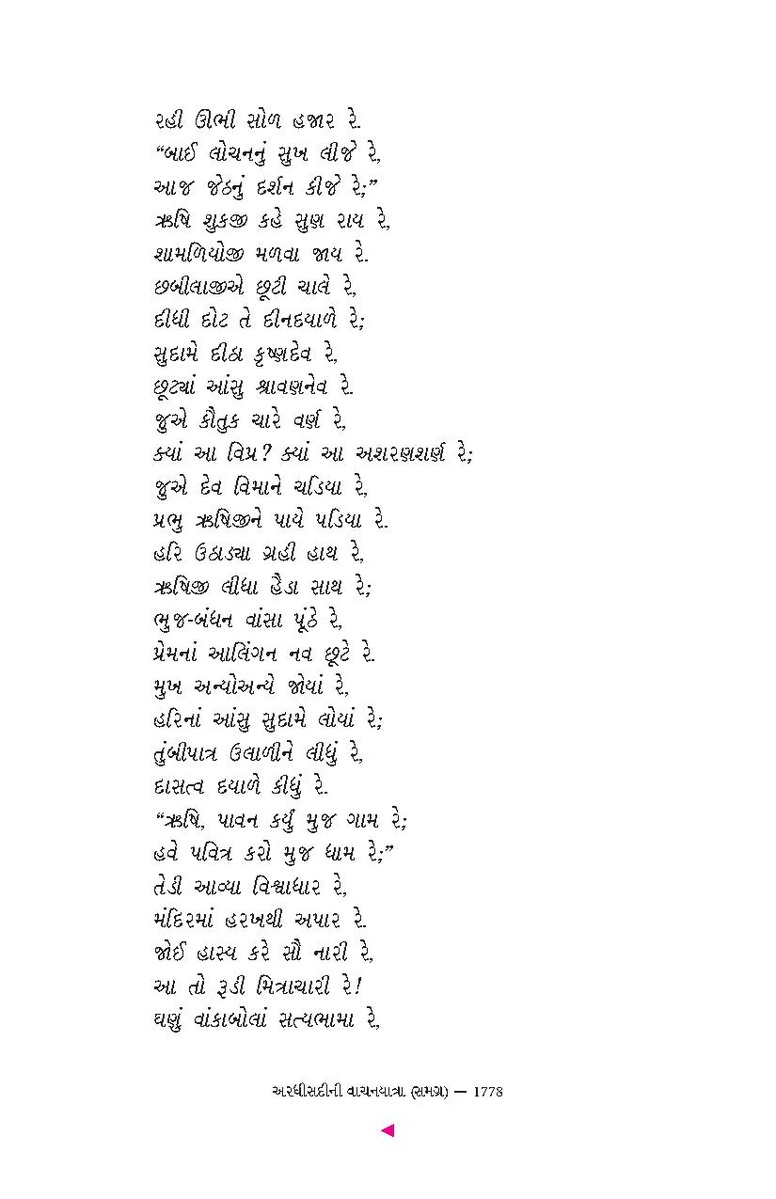 રહી ઊભી સોળ હજાર રે.
“બાઈ લોચનનું સુખ લીજે રે,
આજ જેઠનું દર્શન કીજે રે;”
ઋષિ શુકજી કહે સુણ રાય રે,
શામળિયોજી મળવા જાય રે.
છબીલાજીએ છૂટી ચાલે રે,
દીધી દોટ તે દીનદયાળે રે;
સુદામે દીઠા કૃષ્ણદેવ રે,
છૂટ્યાં આંસુ શ્રાવણનેવ રે.
જુએ કૌતુક ચારે વર્ણ રે,
ક્યાં આ વિપ્ર? ક્યાં આ અશરણશર્ણ રે;
જુએ દેવ વિમાને ચડિયા રે,
પ્રભુ ઋષિજીને પાયે પડિયા રે.
હરિ ઉઠાડ્યા ગ્રહી હાથ રે,
ઋષિજી લીધા હૈડા સાથ રે;
ભુજ-બંધન વાંસા પૂંઠે રે,
પ્રેમનાં આલિંગન નવ છૂટે રે.
મુખ અન્યોઅન્યે જોયાં રે,
હરિનાં આંસુ સુદામે લોયાં રે;
તુંબીપાત્ર ઉલાળીને લીધું રે,
દાસત્વ દયાળે કીધું રે.
“ઋષિ, પાવન કર્યું મુજ ગામ રે;
હવે પવિત્ર કરો મુજ ધામ રે;”
તેડી આવ્યા વિશ્વાધાર રે,
મંદિરમાં હરખથી અપાર રે.
જોઈ હાસ્ય કરે સૌ નારી રે,
આ તો રૂડી મિત્રાચારી રે!
ઘણું વાંકાબોલાં સત્યભામા રે,
અરધીસદીની વાચનયાત્રા (સમગ્ર) — 1778